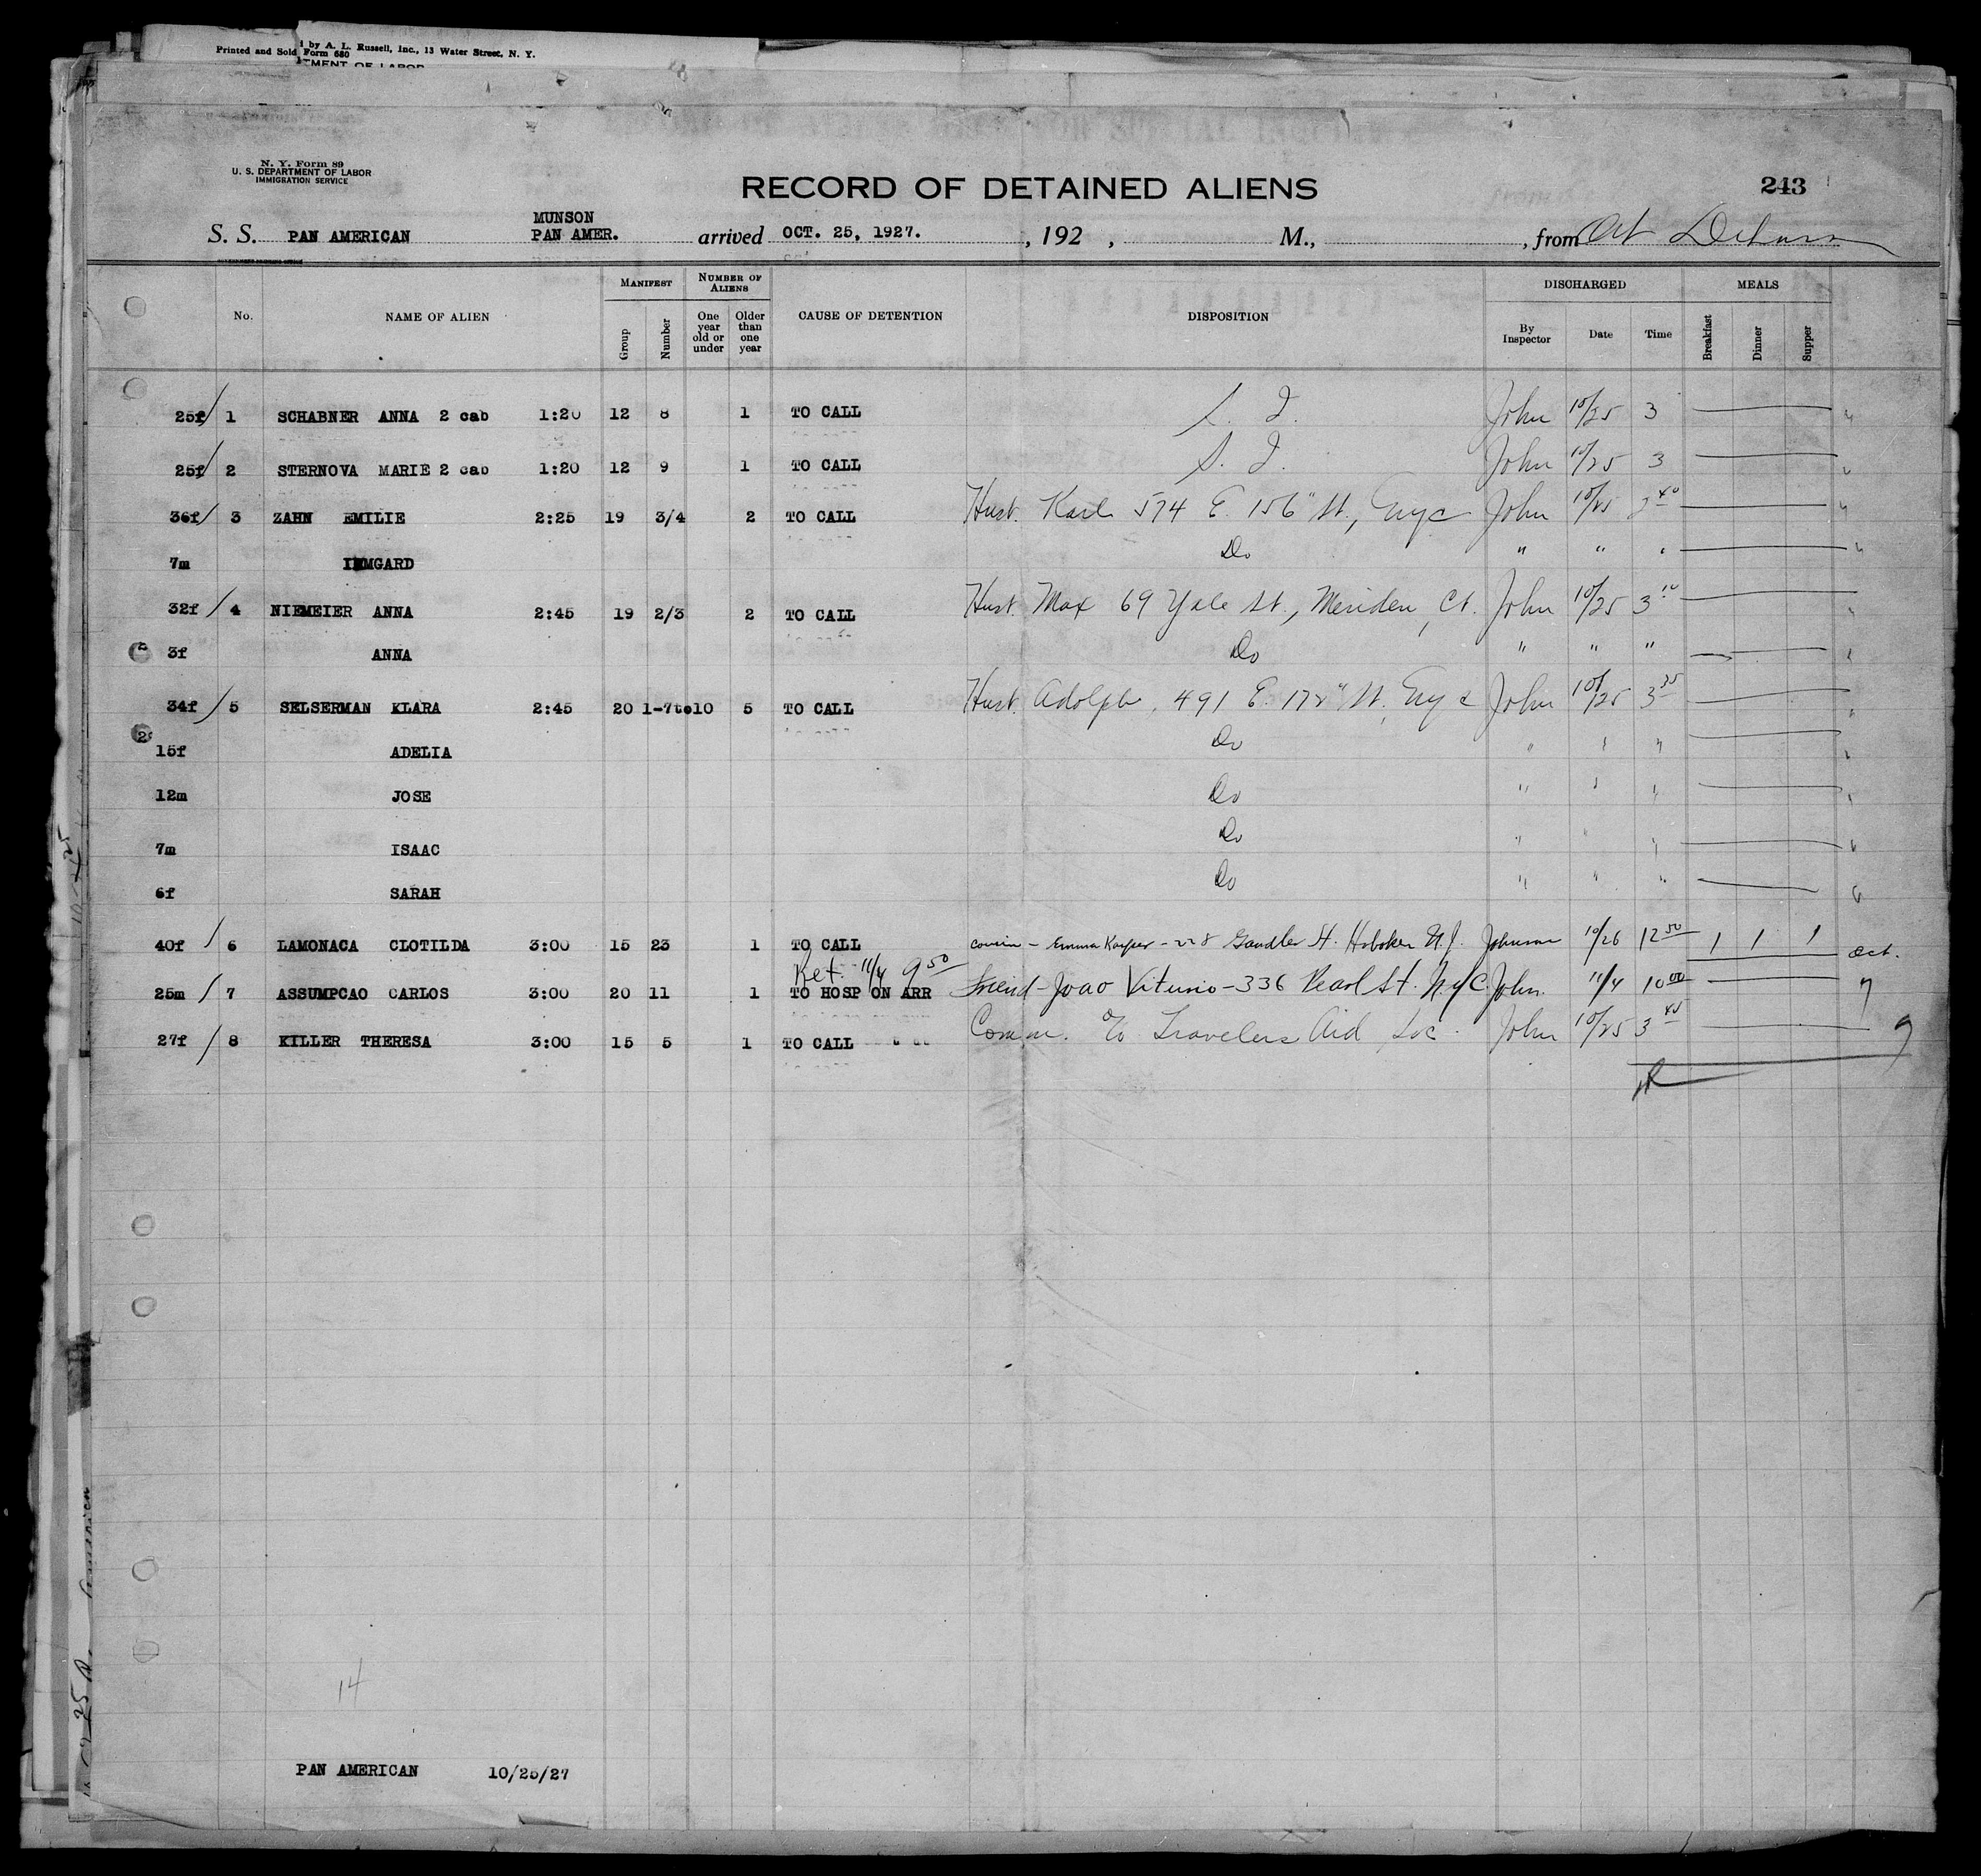 Printed and Sold by A. L. Russell, Inc., 13 Water Street, N. Y.
Form 680
TMENT OF LABOR
N. Y. Form 89
U. S. DEPARTMENT OF LABOR
IMMIGRATION SERVICE
RECORD OF DETAINED ALIENS
243
MUNSON
S. S. PAN AMERICAN PAN AMER. arrived OCT. 25, 1927. , 192 , M., , from
No. NAME OF ALIEN MANIFEST Group Number NUMBER OF ALIENS One year old or under Older than one year CAUSE OF DETENTION DISPOSITION DISCHARGED By Inspector Date Time MEALS Breakfast Dinner Supper
25f 1 SCHABNER ANNA 2 cab 1:20 12 8 1 TO CALL S. I. John 10/25 3
25f 2 STERNOVA MARIE 2 cab 1:20 12 9 1 TO CALL S. I. John 10/25 3
36f 3 ZAHN EMILIE 2:25 19 3/4 2 TO CALL Hust. Karl 574 E. 156" St., Nyc John 10/25 3 40
7m IRMGARD Do " " "
32f 4 NIEMEIER ANNA 2:45 19 2/3 2 TO CALL Hust. Max 69 Yale St., Meriden, Ct. John 10/25 3 10
3f ANNA Do " " "
34f 5 SELSERMAN KLARA 2:45 20 1-7to10 5 TO CALL Hust. Adolph, 491 E. 172" St, Nyc John 10/25 3 35
15f ADELIA Do " " "
12m JOSE Do " " "
7m ISAAC Do " " "
6f SARAH Do " " "
40f 6 LAMONACA CLOTILDA 3:00 15 23 1 TO CALL cousin - Emma Kasper - 228 St. Hoboken N.J. Johnson 10/26 12 50 1 1 1 Oct.
Ret. 11/4 9 50
25m 7 ASSUMPCAO CARLOS 3:00 20 11 1 TO HOSP ON ARR Friend - Joao - 336 Pearl St. N.Y.C. John. 11/4 10 00
27f 8 KILLER THERESA 3:00 15 5 1 TO CALL Comm. to Travelers Aid Soc. John 10/25 3 45
14
PAN AMERICAN 10/25/27